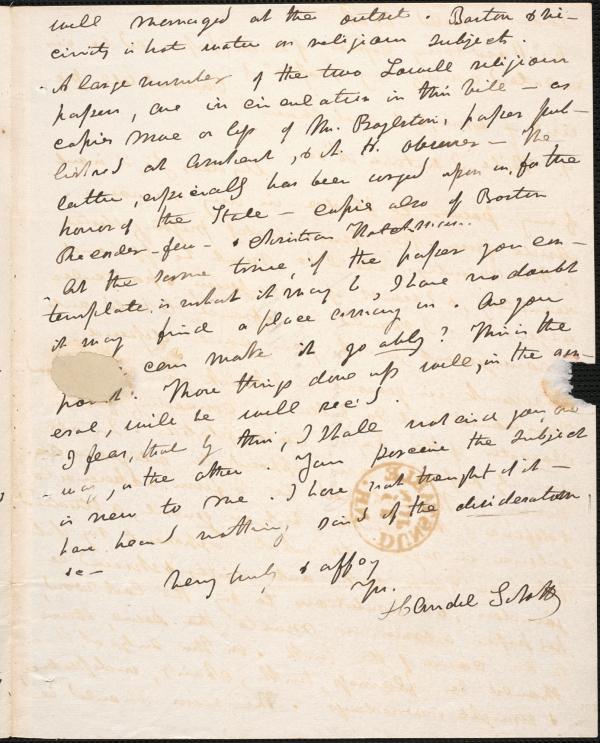 well managed at the outset. Boston & vi-
cinity is hot water on religious subject.
A large number of the two Lowell religious
papers, are in circulation in this vill - as
copies more or less of Mr. Boylston, paper pub-
lished at Amherst, & N. H. Observer - The
latter, especially has been urged upon us, for the
honor of the State - copies also of Boston
Recorder - few - & Christian Watchman.
At the same time, if the paper you con-
template is what it may be, I have no doubt
it may find a place among us. Are you
can make it go ably? This is the
point. Those things done up well, in the gen-
eral, will be well rec'd.
I fear, that by this, I shall not aid you, one
way, or the other. You perceive the subject
is new to me. I have not thought of it -
have heard nothing said of the desideratum,
&c -
Very truly & affy
Yrs.
DUNSTABLE
N.H.